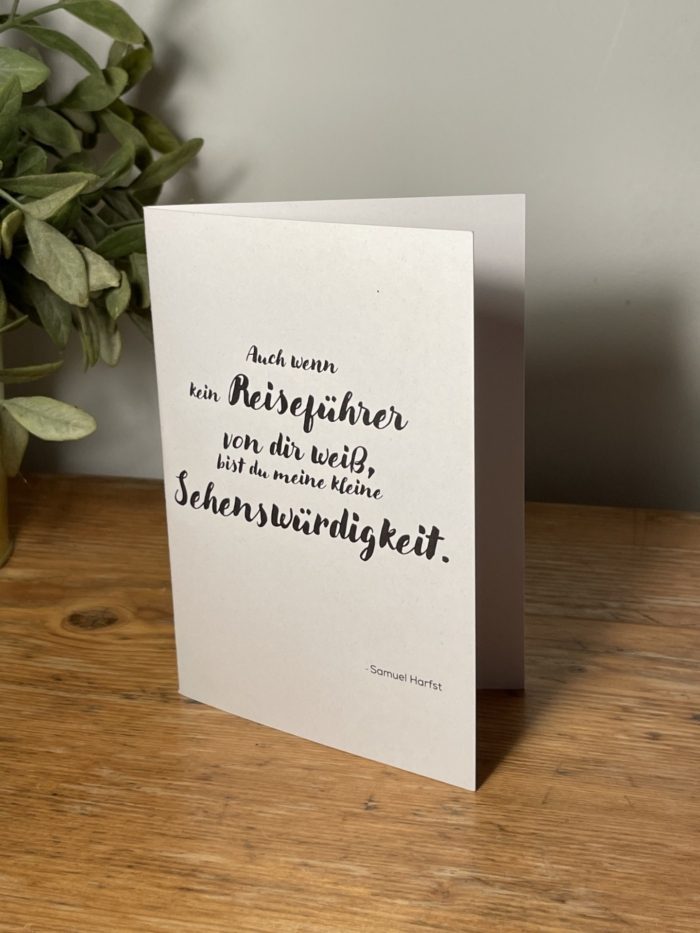 Auch wenn
kein Reiseführer
von dir weiß,
bist du meine kleine
Sehenswürdigkeit.
- Samuel Harfst